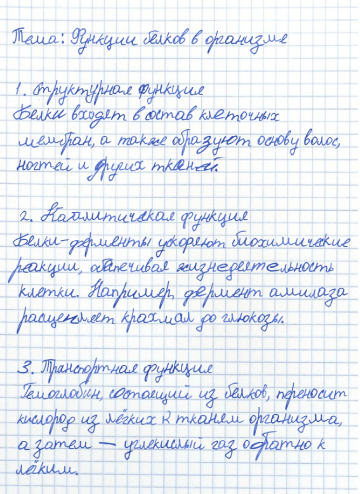 Тема: Функции белков в организме
1. Структурная функция
Белки входят в остав клеточных
мембран, а также образуют основу волос,
ногтей и других тканей.
2. Каталитическая функция
Белки-ферменты ускоряют биохимические
реакции, обепечивая жизнедеятельность
клетки. Например, фермент амилаза
расщепляет крахмал до глюкозы.
3. Транспортная функция
Гемоглобин, состоящий из белков, переносит
кислород из лёгких к тканям организма,
а затем — углекислый газ обратно к
лёгким.